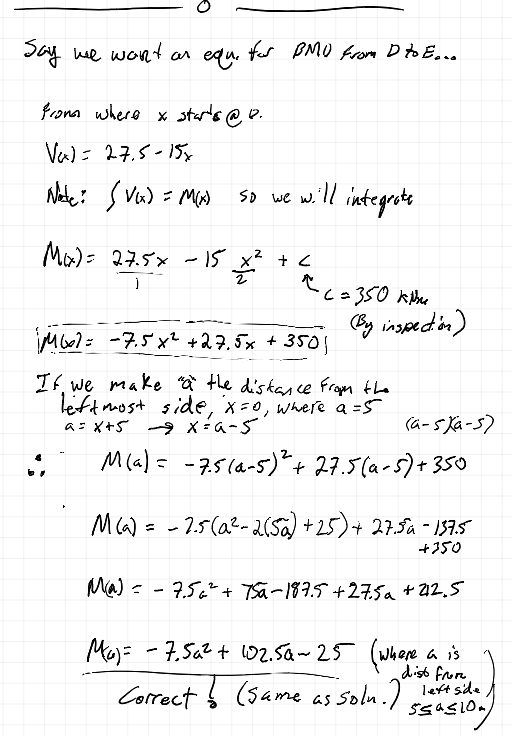 Say we want an equ. for BMD from D to E...
From where x starts @ D.
V(x) = 27.5 - 15x
Note: ∫ V(x) = M(x) so we will integrate
M(x) = 27.5x/1 - 15 x²/2 + C
C = 350 kNm
(By inspection)
M(x) = -7.5x² + 27.5x + 350
If we make "a" the distance from the
leftmost side, x=0, where a=5
a = x+5 → x = a-5
(a-5)(a-5)
∴ M(a) = -7.5(a-5)² + 27.5(a-5) + 350
M(a) = -7.5(a² - 2(5a) + 25) + 27.5a - 137.5
+350
M(a) = -7.5a² + 75a - 187.5 + 27.5a + 212.5
M(a) = -7.5a² + 102.5a - 25 (where a is
dist from
left side,
5≤a≤10m)
Correct! (same as soln.)